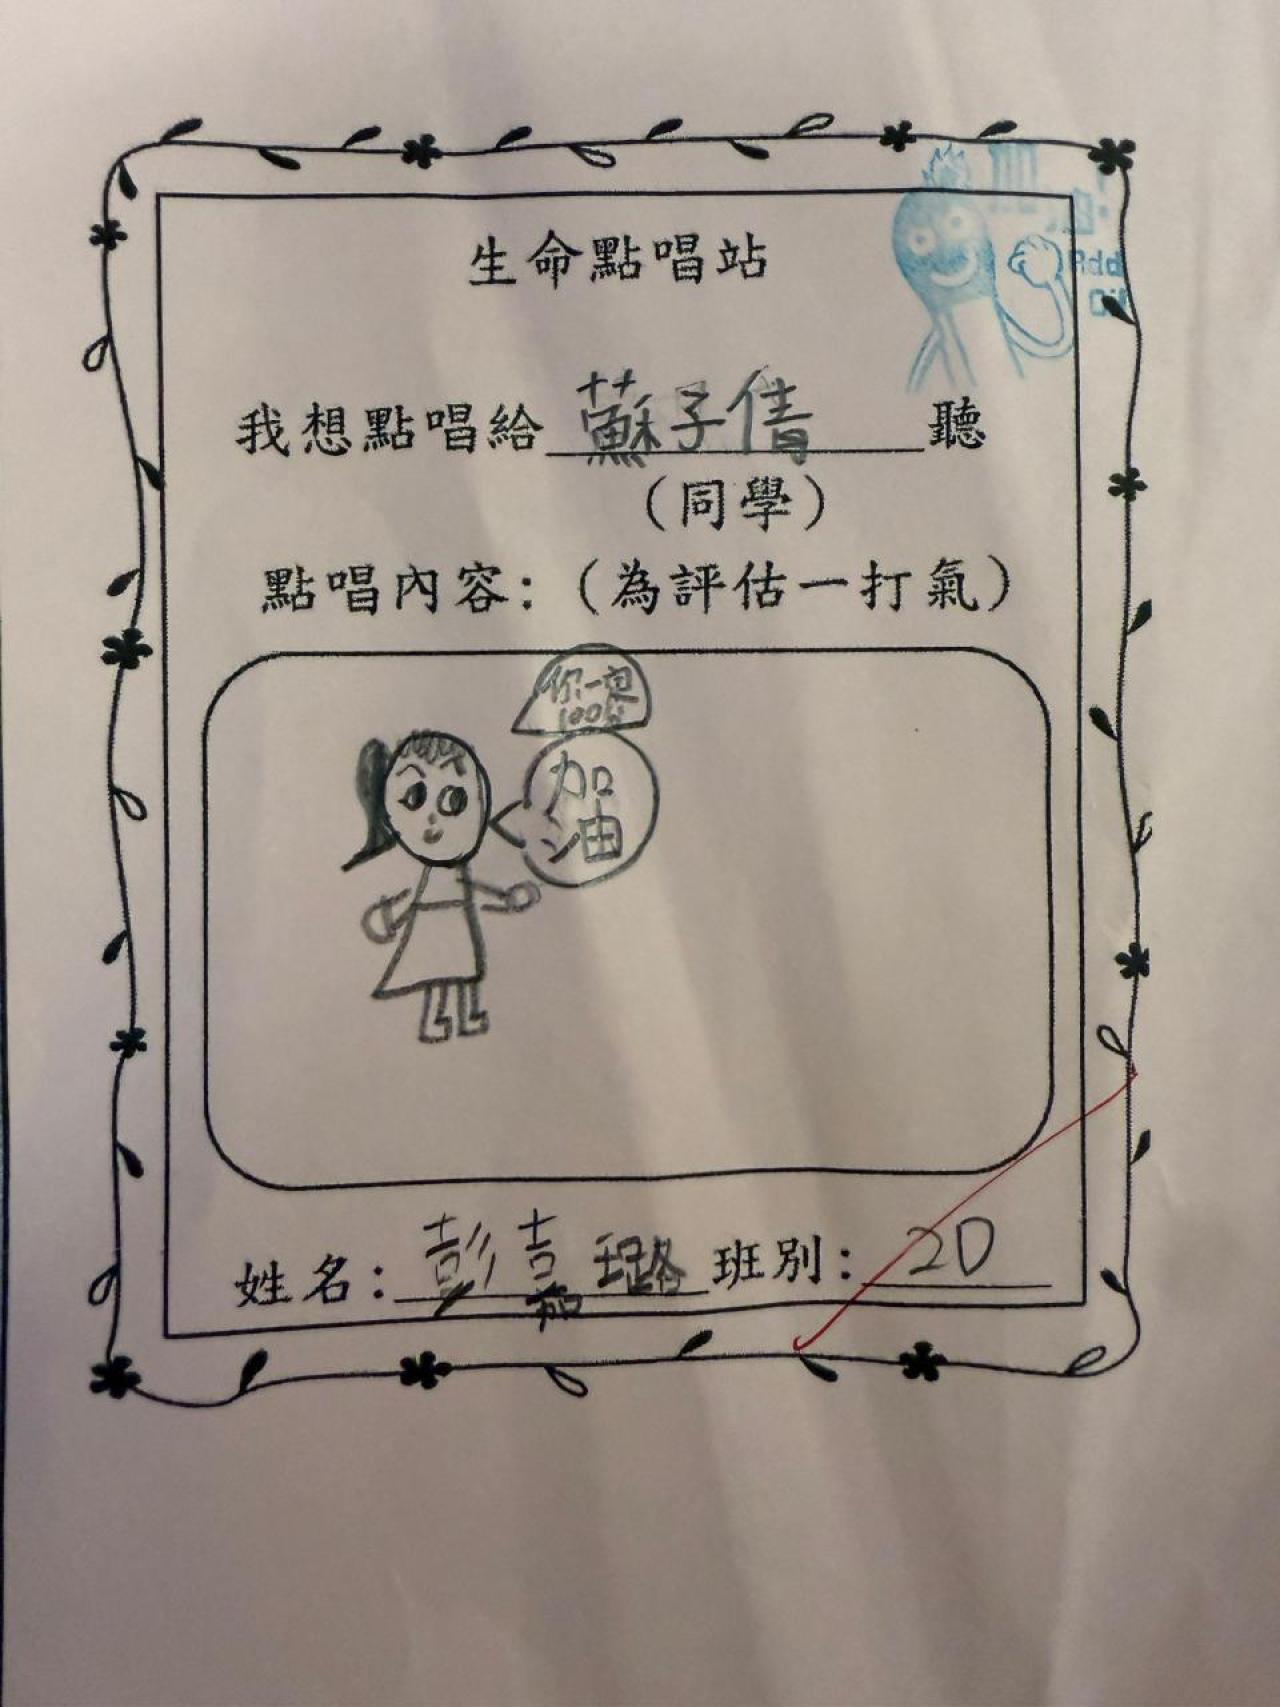 生命點唱站
我想點唱給蘇子倩聽
(同學)
點唱內容:(為評估一打氣)
你一定
100分
加
油
姓名:彭嘉璐班別:2D